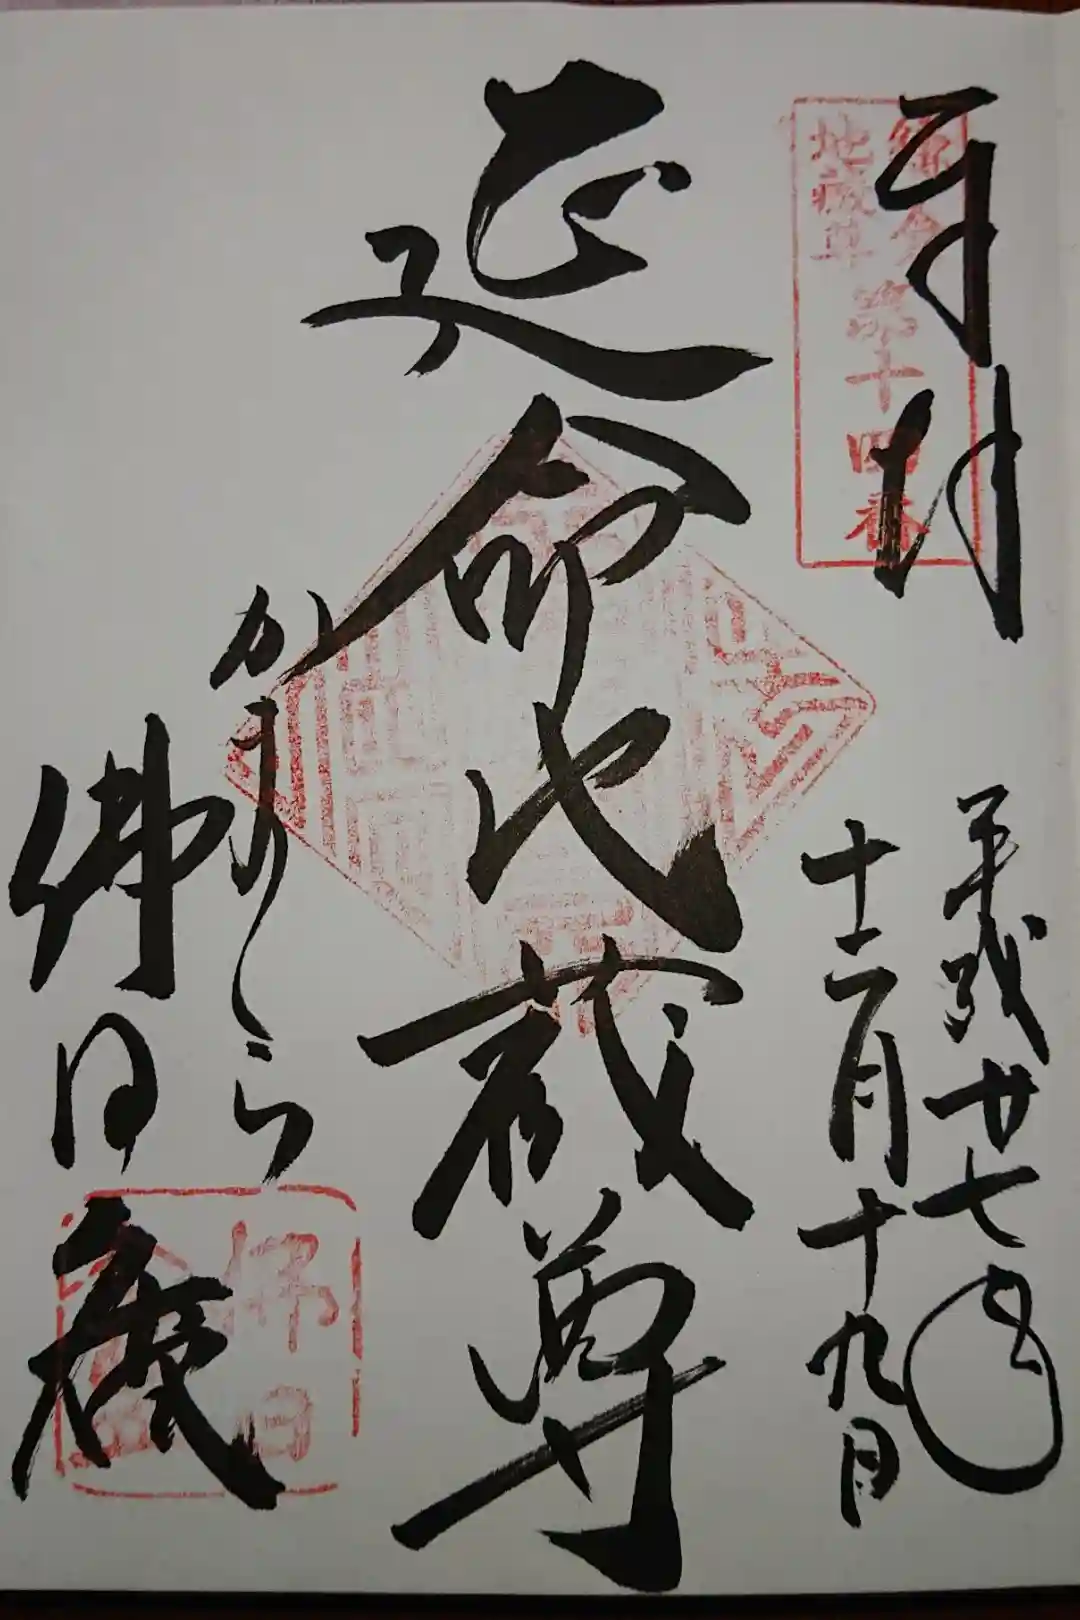 奉拝
鎌倉
地蔵尊
第十四番
平成廿七年
十二月十九日
延命地蔵尊
かまくら
佛日庵